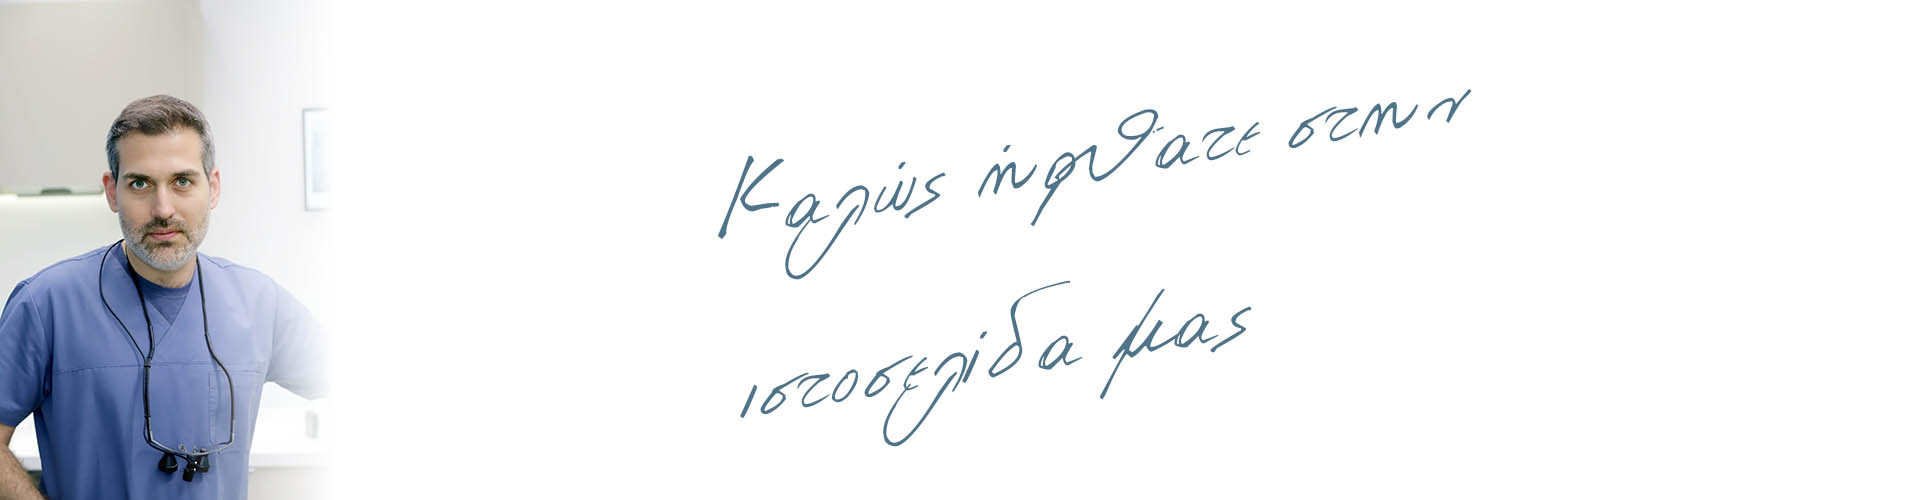 Καλώς ήρθατε στην
ιστοσελίδα μας